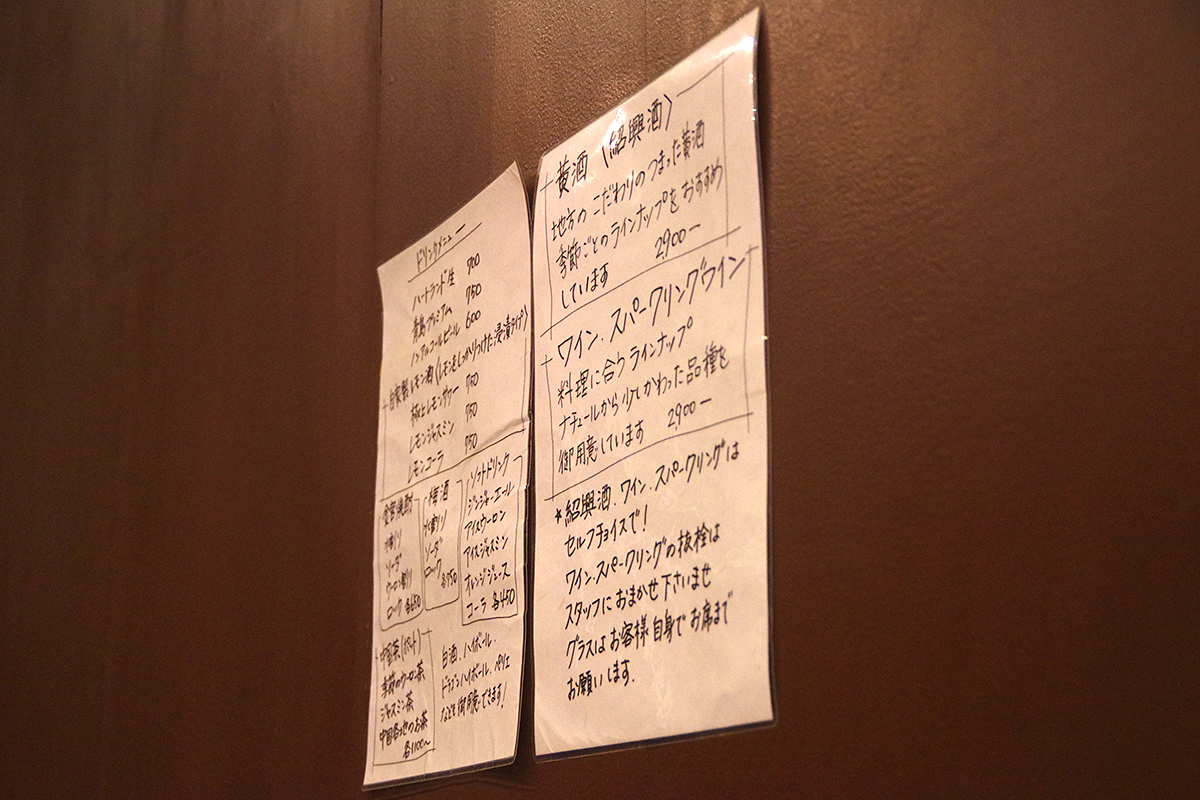 ドリンクメニュー
ハートランド生 700
青島プレミアム 750
ノンアルコールビール 600
自家製レモン酒(レモンをしっかりつけた浸漬タイプ)
極上レモンサワー 750
レモンジャスミン 750
レモンコーラ 750
焼酎
水割り
ソーダ
ウーロン割り
ロック 各650
梅酒
水割り
ソーダ
ロック 各750
ソフトドリンク
ジンジャーエール
アイスウーロン
アイスジャスミン
オレンジジュース
コーラ 各450
中国茶(ポット)
季節のウーロン茶
ジャスミン茶
中国各地のお茶
各1100〜
白酒、ハイボール、
ドラゴンハイボール、ペリエ
なども御用意できます!
黄酒(紹興酒)
地方のこだわりのつまった黄酒
季節ごとのラインナップをおすすめ
しています 2,900ー
ワイン、スパークリングワイン
料理に合うラインナップ
ナチュールから少しかわった品種を
御用意しています 2,900ー
*紹興酒、ワイン、スパークリングは
セルフチョイスで!
ワイン、スパークリングの抜栓は
スタッフにおまかせ下さいませ
グラスはお客様自身でお席まで
お願いします.